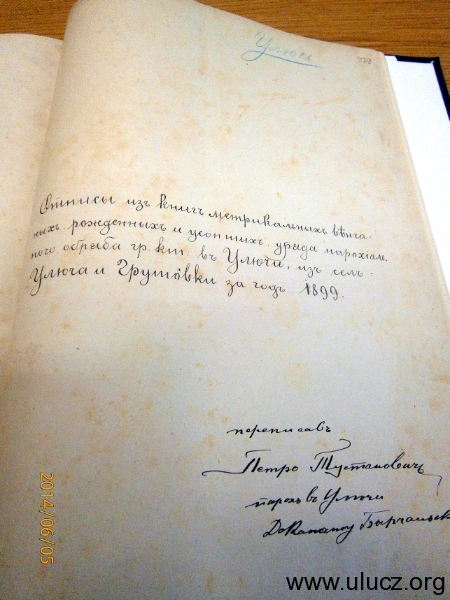 Улюсь
Отписы изъ книгъ метрикальныхъ вѣнча-
ныхъ, рожденныхъ и усопшихъ, уряда парохіаль-
ного обряда гр. кат. въ Улючи, изъ селъ:
Улюча и Грушôвки за годъ 1899.
переписавъ
Петро Тустановичъ
парохъ въ Улючи
Деканату Бырчаньск
2014/06/05
www.ulucz.org